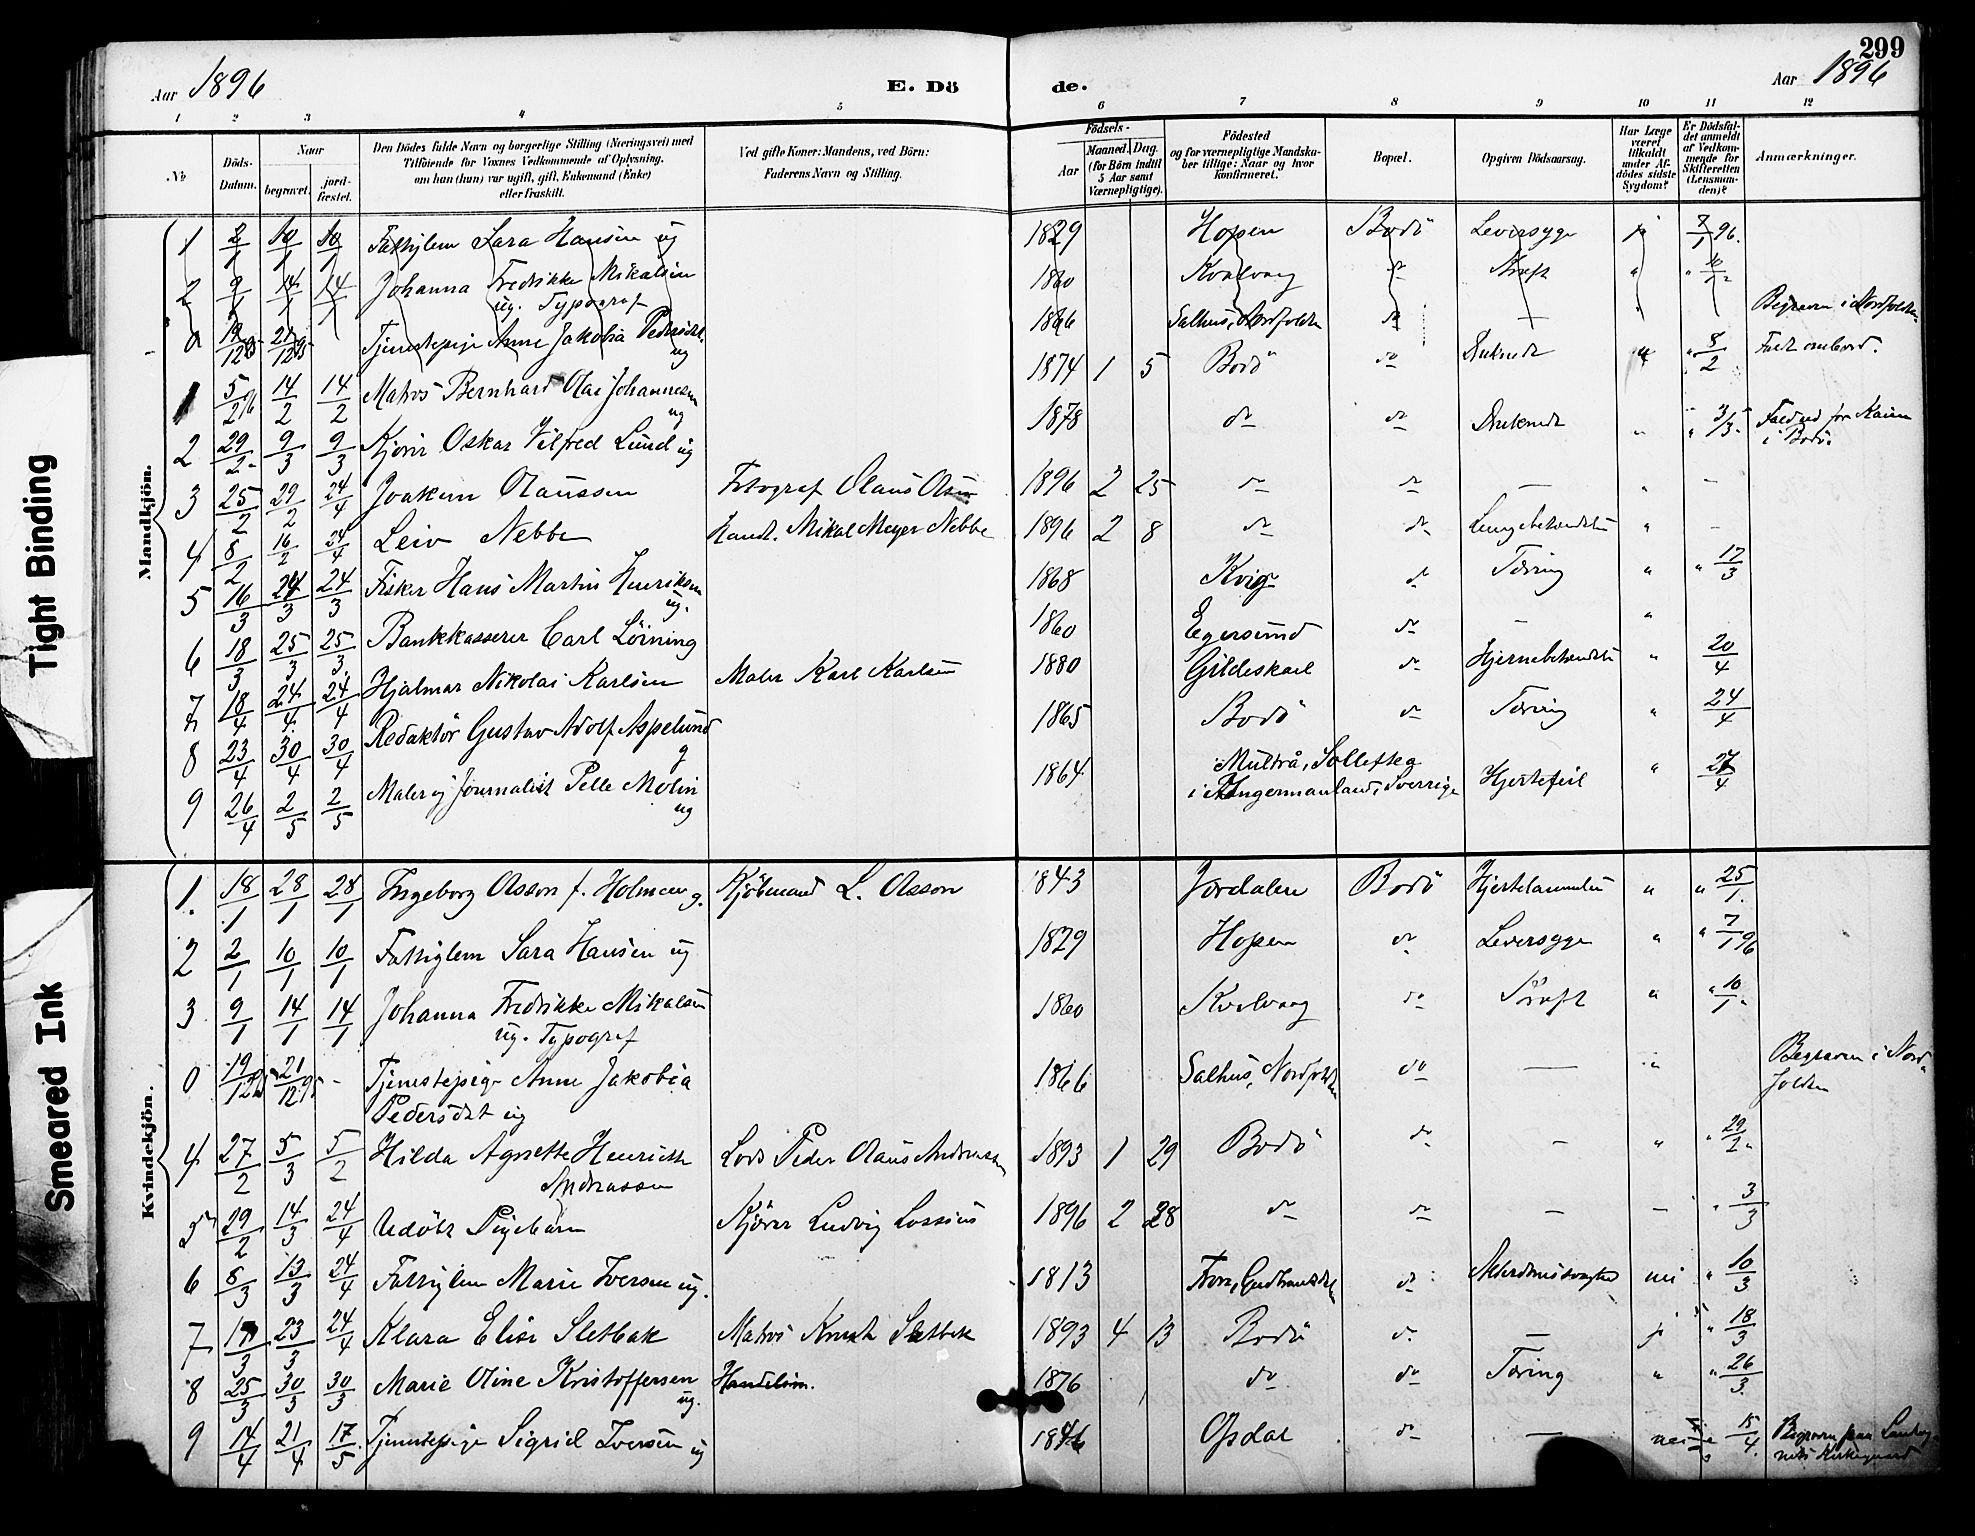 299
Aar 1896
E. Dö
de.
Aar 1896
1 2 3 4 5 6 7 8 9 10 11 12
No
Döds-Datum.
Naar
begravet.
jord-fæstet.
Den Dödes fulde Navn og borgerlige Stilling (Næringsvei) med
Tilföiende for Voxnes Vedkommende af Oplysning,
om han (hun) var ugift, gift, Enkemand (Enke)
eller fraskilt.
Ved gifte Koner: Mandens, ved Börn:
Faderens Navn og Stilling.
Födsels-
Aar
Maaned. Dag.
(for Börn indtil
5 Aar samt
Værnepligtige).
Födested
og for værnepligtige Mandska-
ber tillige: Naar og hvor
konfirmeret.
Bopæl.
Opgiven Dödsaarsag.
Har Læge
været
tilkaldt
under Af-
dödes sidste
Sygdom?
Er Dödsfal-
det anmeldt
af Vedkom-
mende for
Skifteretten
(Lensman-
den)?
Anmærkninger.
Mandkjön.
1 2/1 10/1 10/1 Fattiglem Sara Hansen ug 1829 Hopen Bodö Leversyge ja 7/1 96.
2 9/1 14/1 14/1 Johanna Fredrikke Mikalsen
ug. Typograf 1860 Kvalvaag do Kræft " " 10/1 "
0 19/12 95 21/12 95 Tjenestepige Anne Jakobia Pedersdt.
ug 1866 Salhus, Nordfolden do — Begraven i Nordfolden
1 5/2 96 14/2 14/2 Matros Bernhard Olai Johannesen
ug 1874 1 5 Bodö do Druknede " 8/2 Faldt ombord.
2 29/2 9/3 9/3 Kjörer Oskar Vilfred Lund ug 1878 do do Druknede " " 3/3 Fald ud for Kaien
i Bodö.
3 25/2 29/2 24/4 Joakim Olaussen Fotograf Olaus Olsen 1896 2 25 do do — " —
4 8/2 16/2 24/4 Leiv Nebbe Handl. Mikal Meyer Nebbe 1896 2 8 do do Lungebetændelse " —
5 16/3 24/3 24/3 Fisker Hans Martin Henriksen
ug. 1868 do Tæring " " 17/3
6 18/3 25/3 25/3 Bankkasserer Carl Löining 1860 Egersund do — "
7 18/4 24/4 24/4 Hjalmar Nikolai Karlsen Maler Karl Karlsen 1880 Gildeskaal do Hjernebetændelse " 20/4
8 23/4 30/4 30/4 Redaktör Gustav Adolf Aspelund
g 1865 Bodö do Tæring " 24/4
9 26/4 2/5 2/5 Maler og Journalist Pelle Molin
ug 1864 Multrå, Solleftea
i Ångermanland, Sverrige Hjertefeil " 27/4
Kvindekjön.
1. 18/1 28/1 28/1 Ingeborg Olsson f. Holmen g. Kjöbmand L. Olsson 1843 Jordalen Bodö Hjertelammelse " " 25/1.
2 2/1 10/1 10/1 Fattiglem Sara Hansen ug 1829 Hopen do Leversyge " " 7/1 96
3 9/1 14/1 14/1 Johanna Fredrikke Mikalsen
ug. Typograf 1860 Kvalvaag do Kræft " " 10/1 "
0 19/12 95 21/12 95 - Tjenestepige Anne Jakobia
Pedersdt ug 1866 Salhus, Nordfolden do — " Begraven i Nord-
folden
4 27/2 5/3 5/2 Hilda Agnette Henriette
Andreassen Lods Peder Olaus Andreassen 1893 1 29 Bodö do — " " 29/2 "
5 29/2 14/3 24/4 Udöbt Pigebarn Kjörer Ludvig Lossius 1896 2 28 do do — — " 3/3
6 8/3 13/3 24/4 Fattiglem Marie Iversen ug. 1813 Fron, Gudbrandsdalen do Alderdomssvaghed nei " 10/3
7 17/3 23/3 24/4 Klara Elise Sletbak Matros Knut Sletbak 1893 4 13 Bodö do — ja " 18/3
8 25/3 30/3 30/3 Marie Oline Kristoffersen
ug. Handelsm. 1876 do do Tæring " " 26/3.
9 14/4 21/4 17/5 Tjenestepige Sigrid Iversen ug 1846 Opdal do — nei 15/4. Begraven paa
Kirkegaard
Tight Binding
Smeared Ink